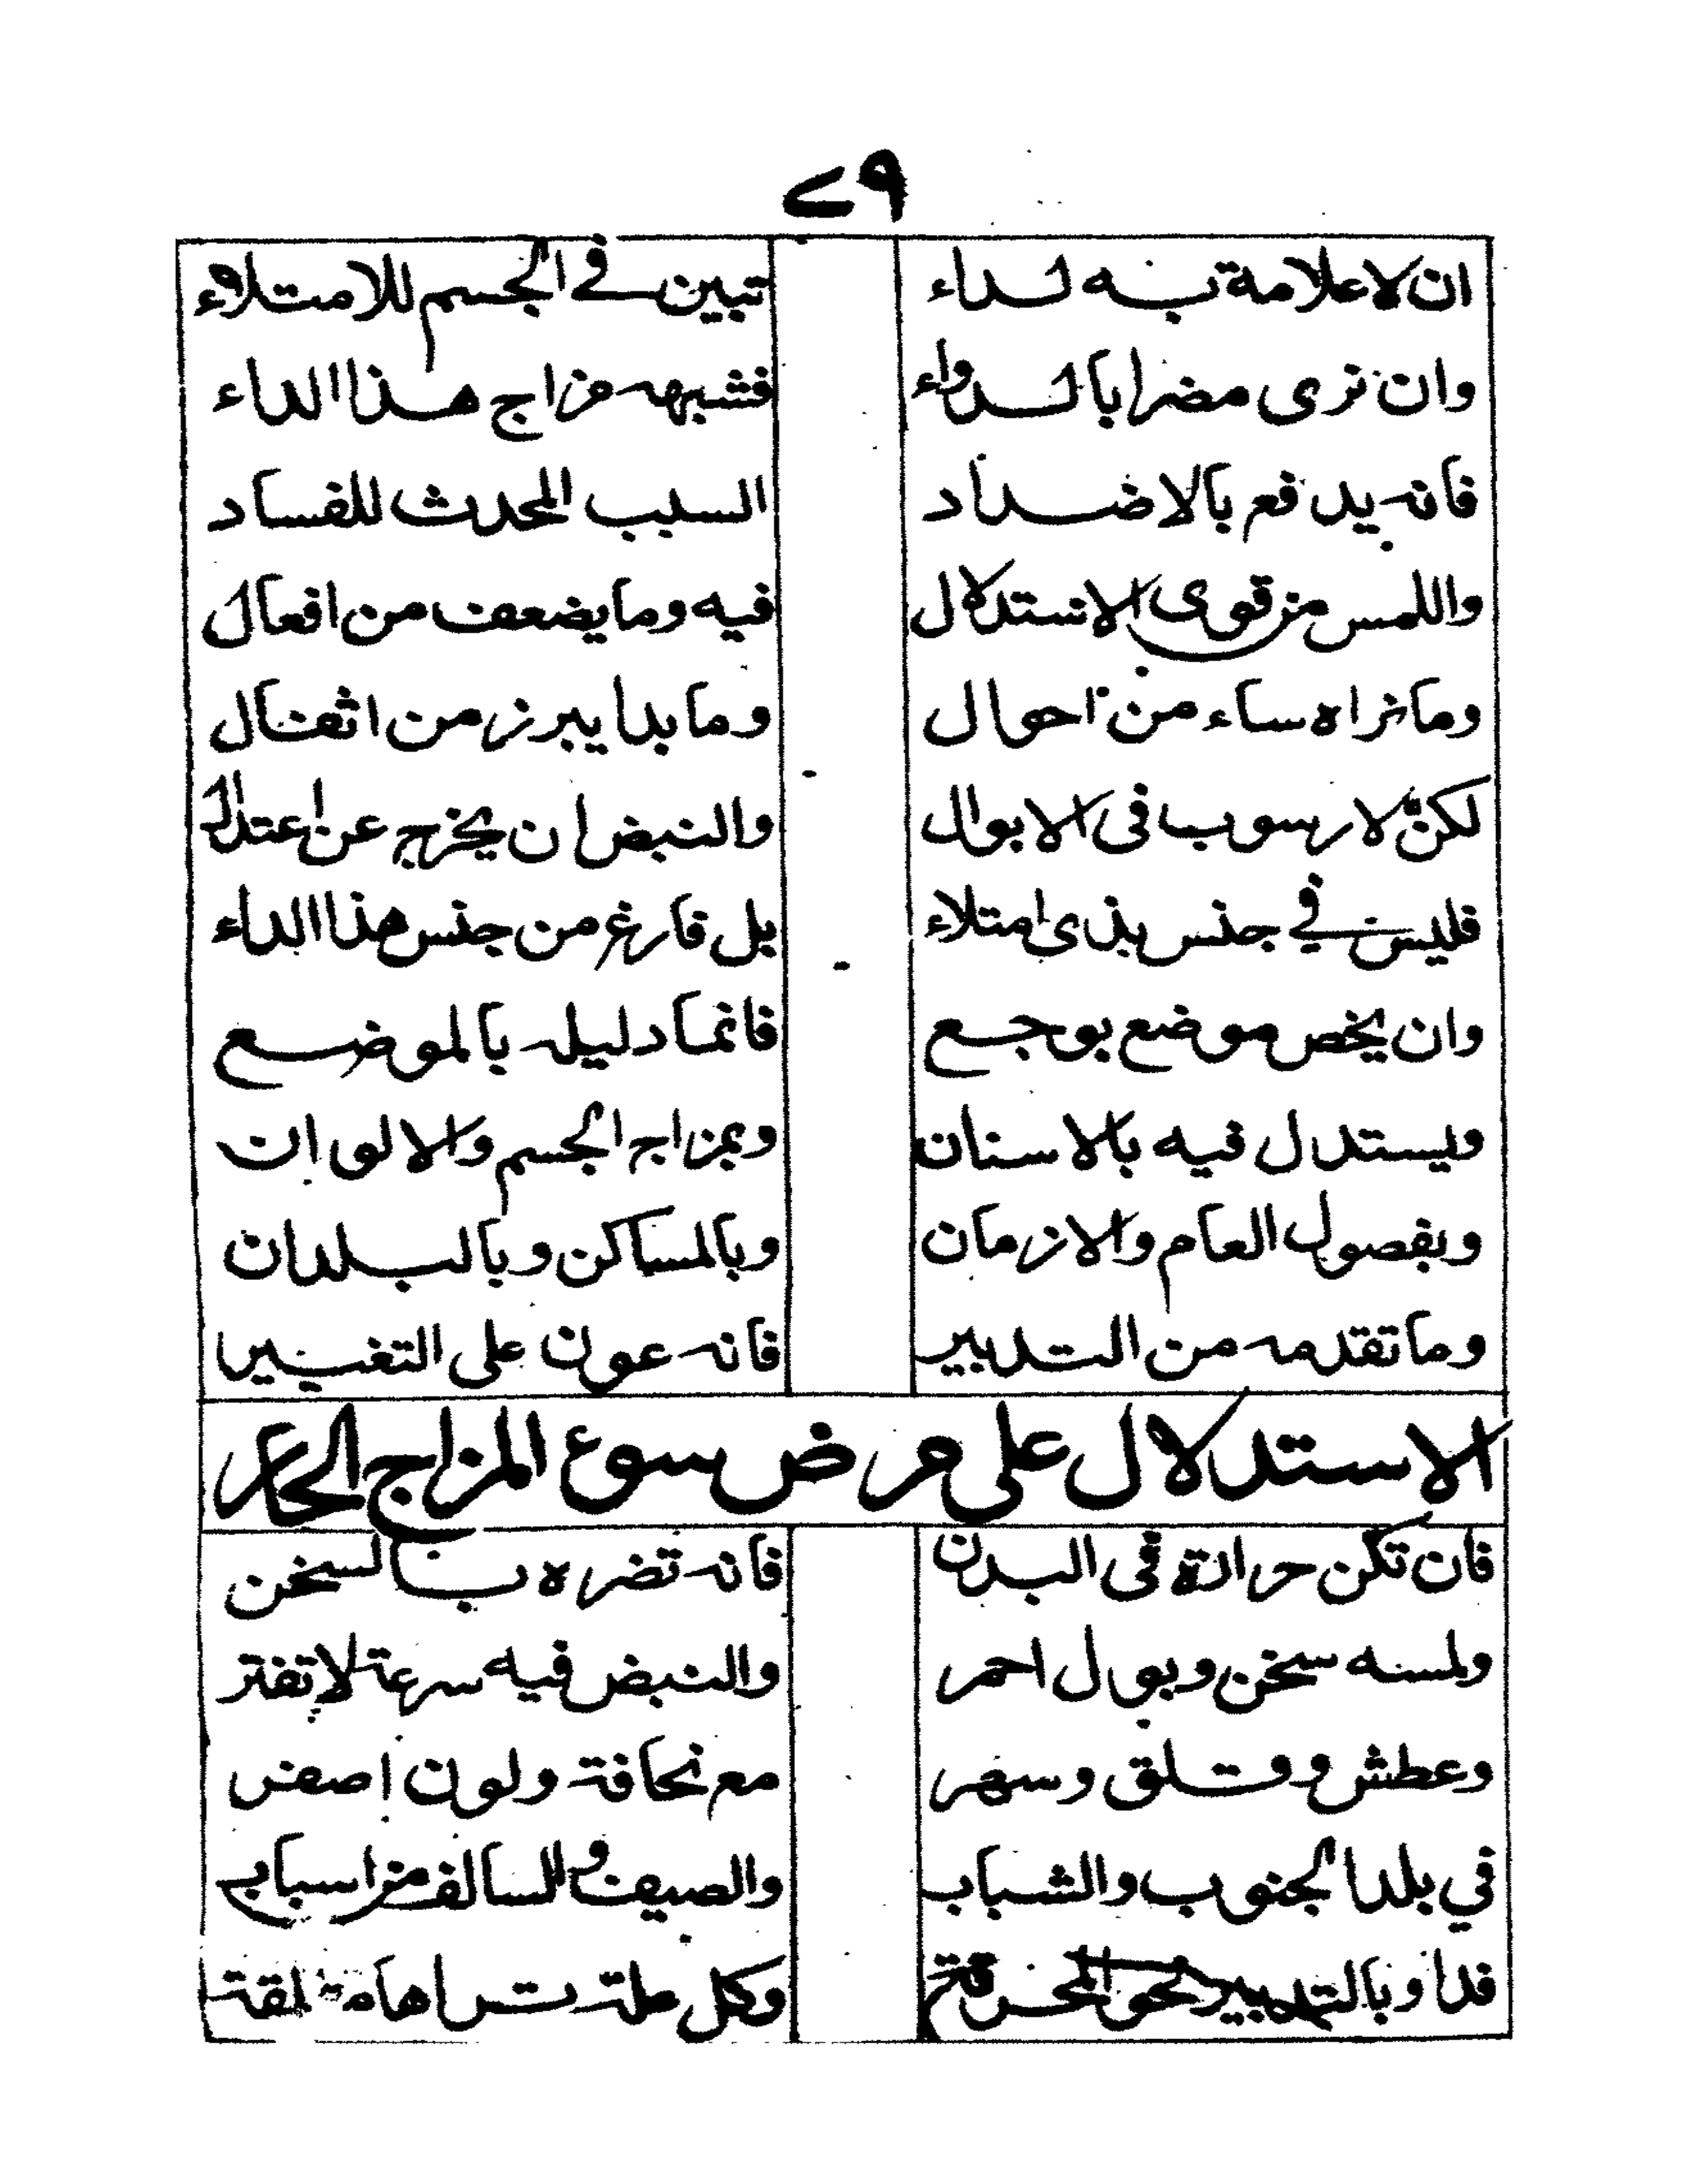 ٧٩
ان لا علامة به لداء تبين في الجسم للامتلاء
وان ترى مضرا بالدواء فشبهه مزاج هذا الداء
فانه يدفع بالاضداد السبب المحدث للفساد
واللمس من قوى الاستدلال فيه وما يضعف من افعال
وما تراه ساء من احوال وما بدا يبرز من اثفال
لكن لا رسوب في الابوال والنبض ان يخرج عن اعتدال
فليس في جنس بذى امتلاء بل فارغ من جنس هذا الداء
وان يخص موضع بوجع فانما دليله بالموضع
ويستدل فيه بالاسنان وبمزاج الجسم والالوان
وبفصول العام والازمان وبالمساكن وبالبلدان
وما تقدمه من التدبير فانه عون على التغيير
الاستدلال على مرض سوء المزاج الحار
فان تكن حرارة في البدن فانه تضره بالسخن
ولمسه سخن وبول احمر والنبض فيه سرعة لا تفتر
وعطش وقلق وسهر مع نحافة ولون اصفر
في بلد الجنوب والشباب والصيف والسالف من اسباب
فداو بالتدبير نحو وكل علة تراها